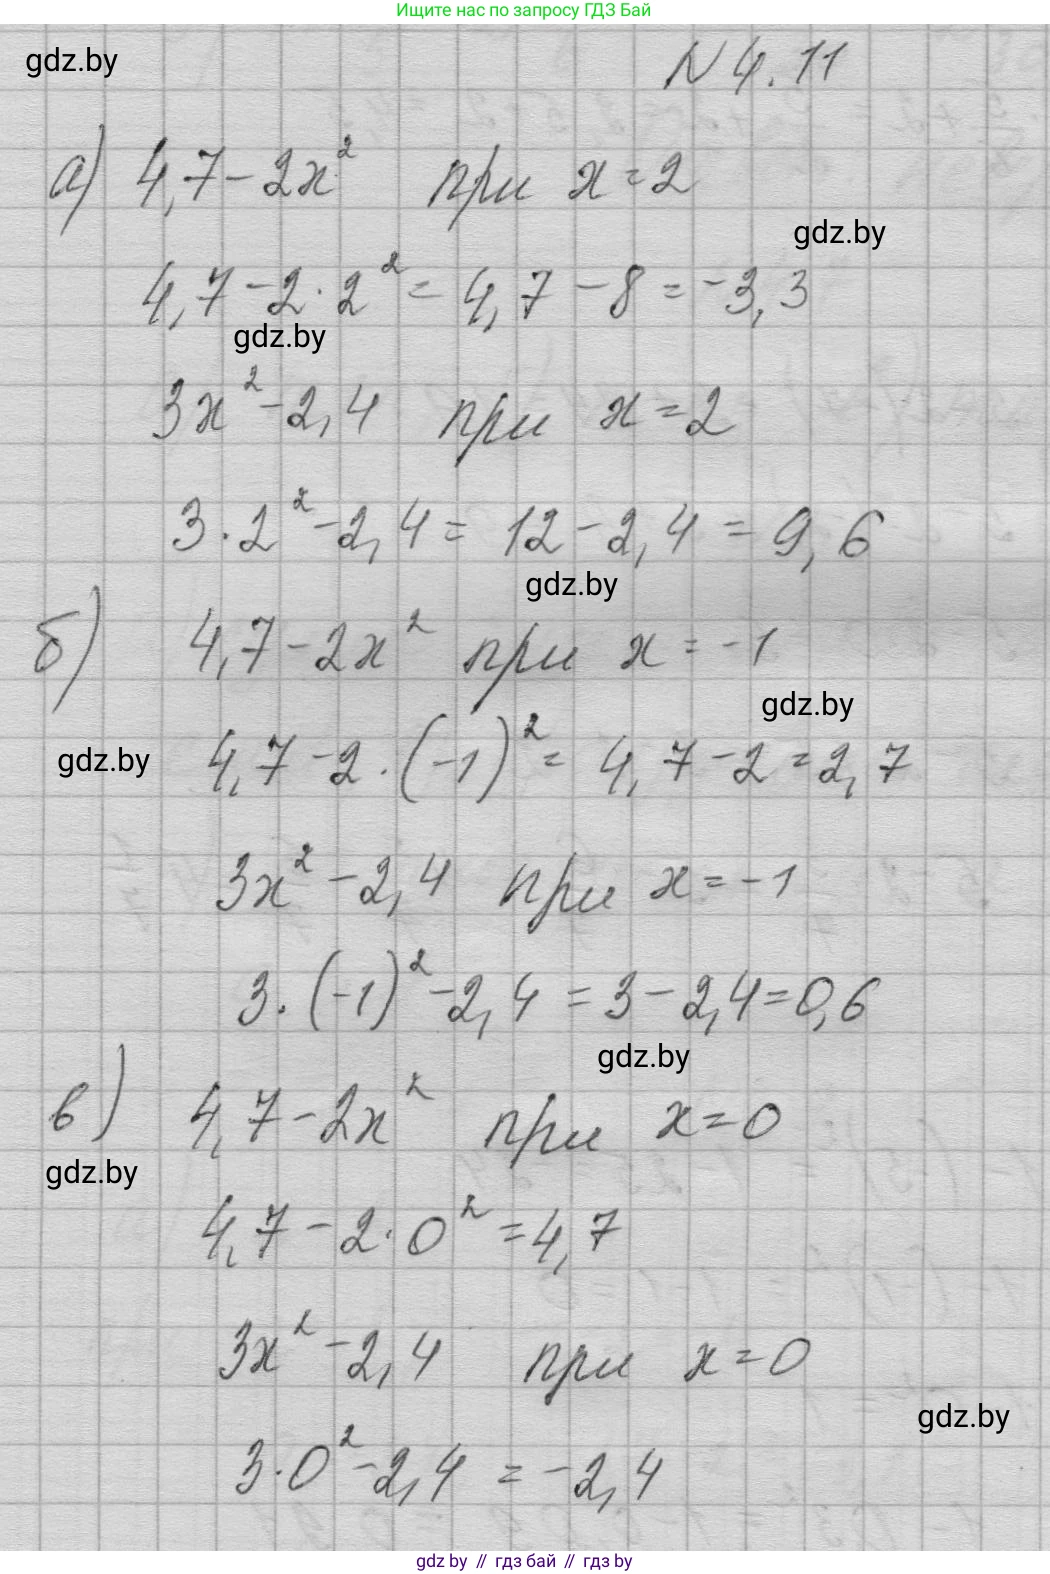 Ищите нас по запросу ГДЗ Бай
gdz.by
N 4.11
а) 4,7 - 2x² при x = 2
gdz.by
4,7 - 2 · 2² = 4,7 - 8 = -3,3
gdz.by
3x² - 2,4 при x = 2
3 · 2² - 2,4 = 12 - 2,4 = 9,6
gdz.by
б) 4,7 - 2x² при x = -1
gdz.by
gdz.by
4,7 - 2 · (-1)² = 4,7 - 2 = 2,7
3x² - 2,4 при x = -1
3 · (-1)² - 2,4 = 3 - 2,4 = 0,6
gdz.by
в) 4,7 - 2x² при x = 0
gdz.by
4,7 - 2 · 0² = 4,7
3x² - 2,4 при x = 0
gdz.by
3 · 0² - 2,4 = -2,4
gdz.by // гдз бай // гдз by